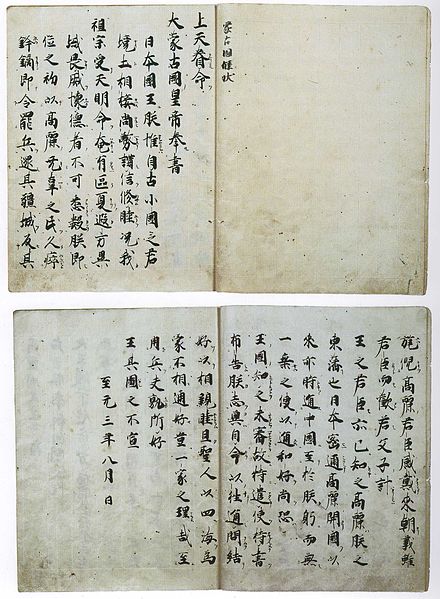 蒙古国牒状
上天眷命
大蒙古國皇帝奉書
日本國王朕惟自古小國之君
境土相接尚務講信修睦况我
祖宗受天明命奄有區夏遐方異
域畏威懐德者不可悉數朕即
位之初以高麗无辜之民久瘁
鋒鏑即令罷兵還其疆域反其
旄倪高麗君臣感戴來朝義雖
君臣而歡若父子計
王之君臣亦已知之高麗朕之
東藩也日本密邇高麗開國以
來亦時通中國至於朕躬而無
一乗之使以通和好尚恐
王國知之未審故特遣使持書
布告朕志冀自今以往通問結
好以相親睦且聖人以四海為
家不相通好豈一家之理哉至
用兵夫孰所好
王其圖之不宣
至元三年八月 日